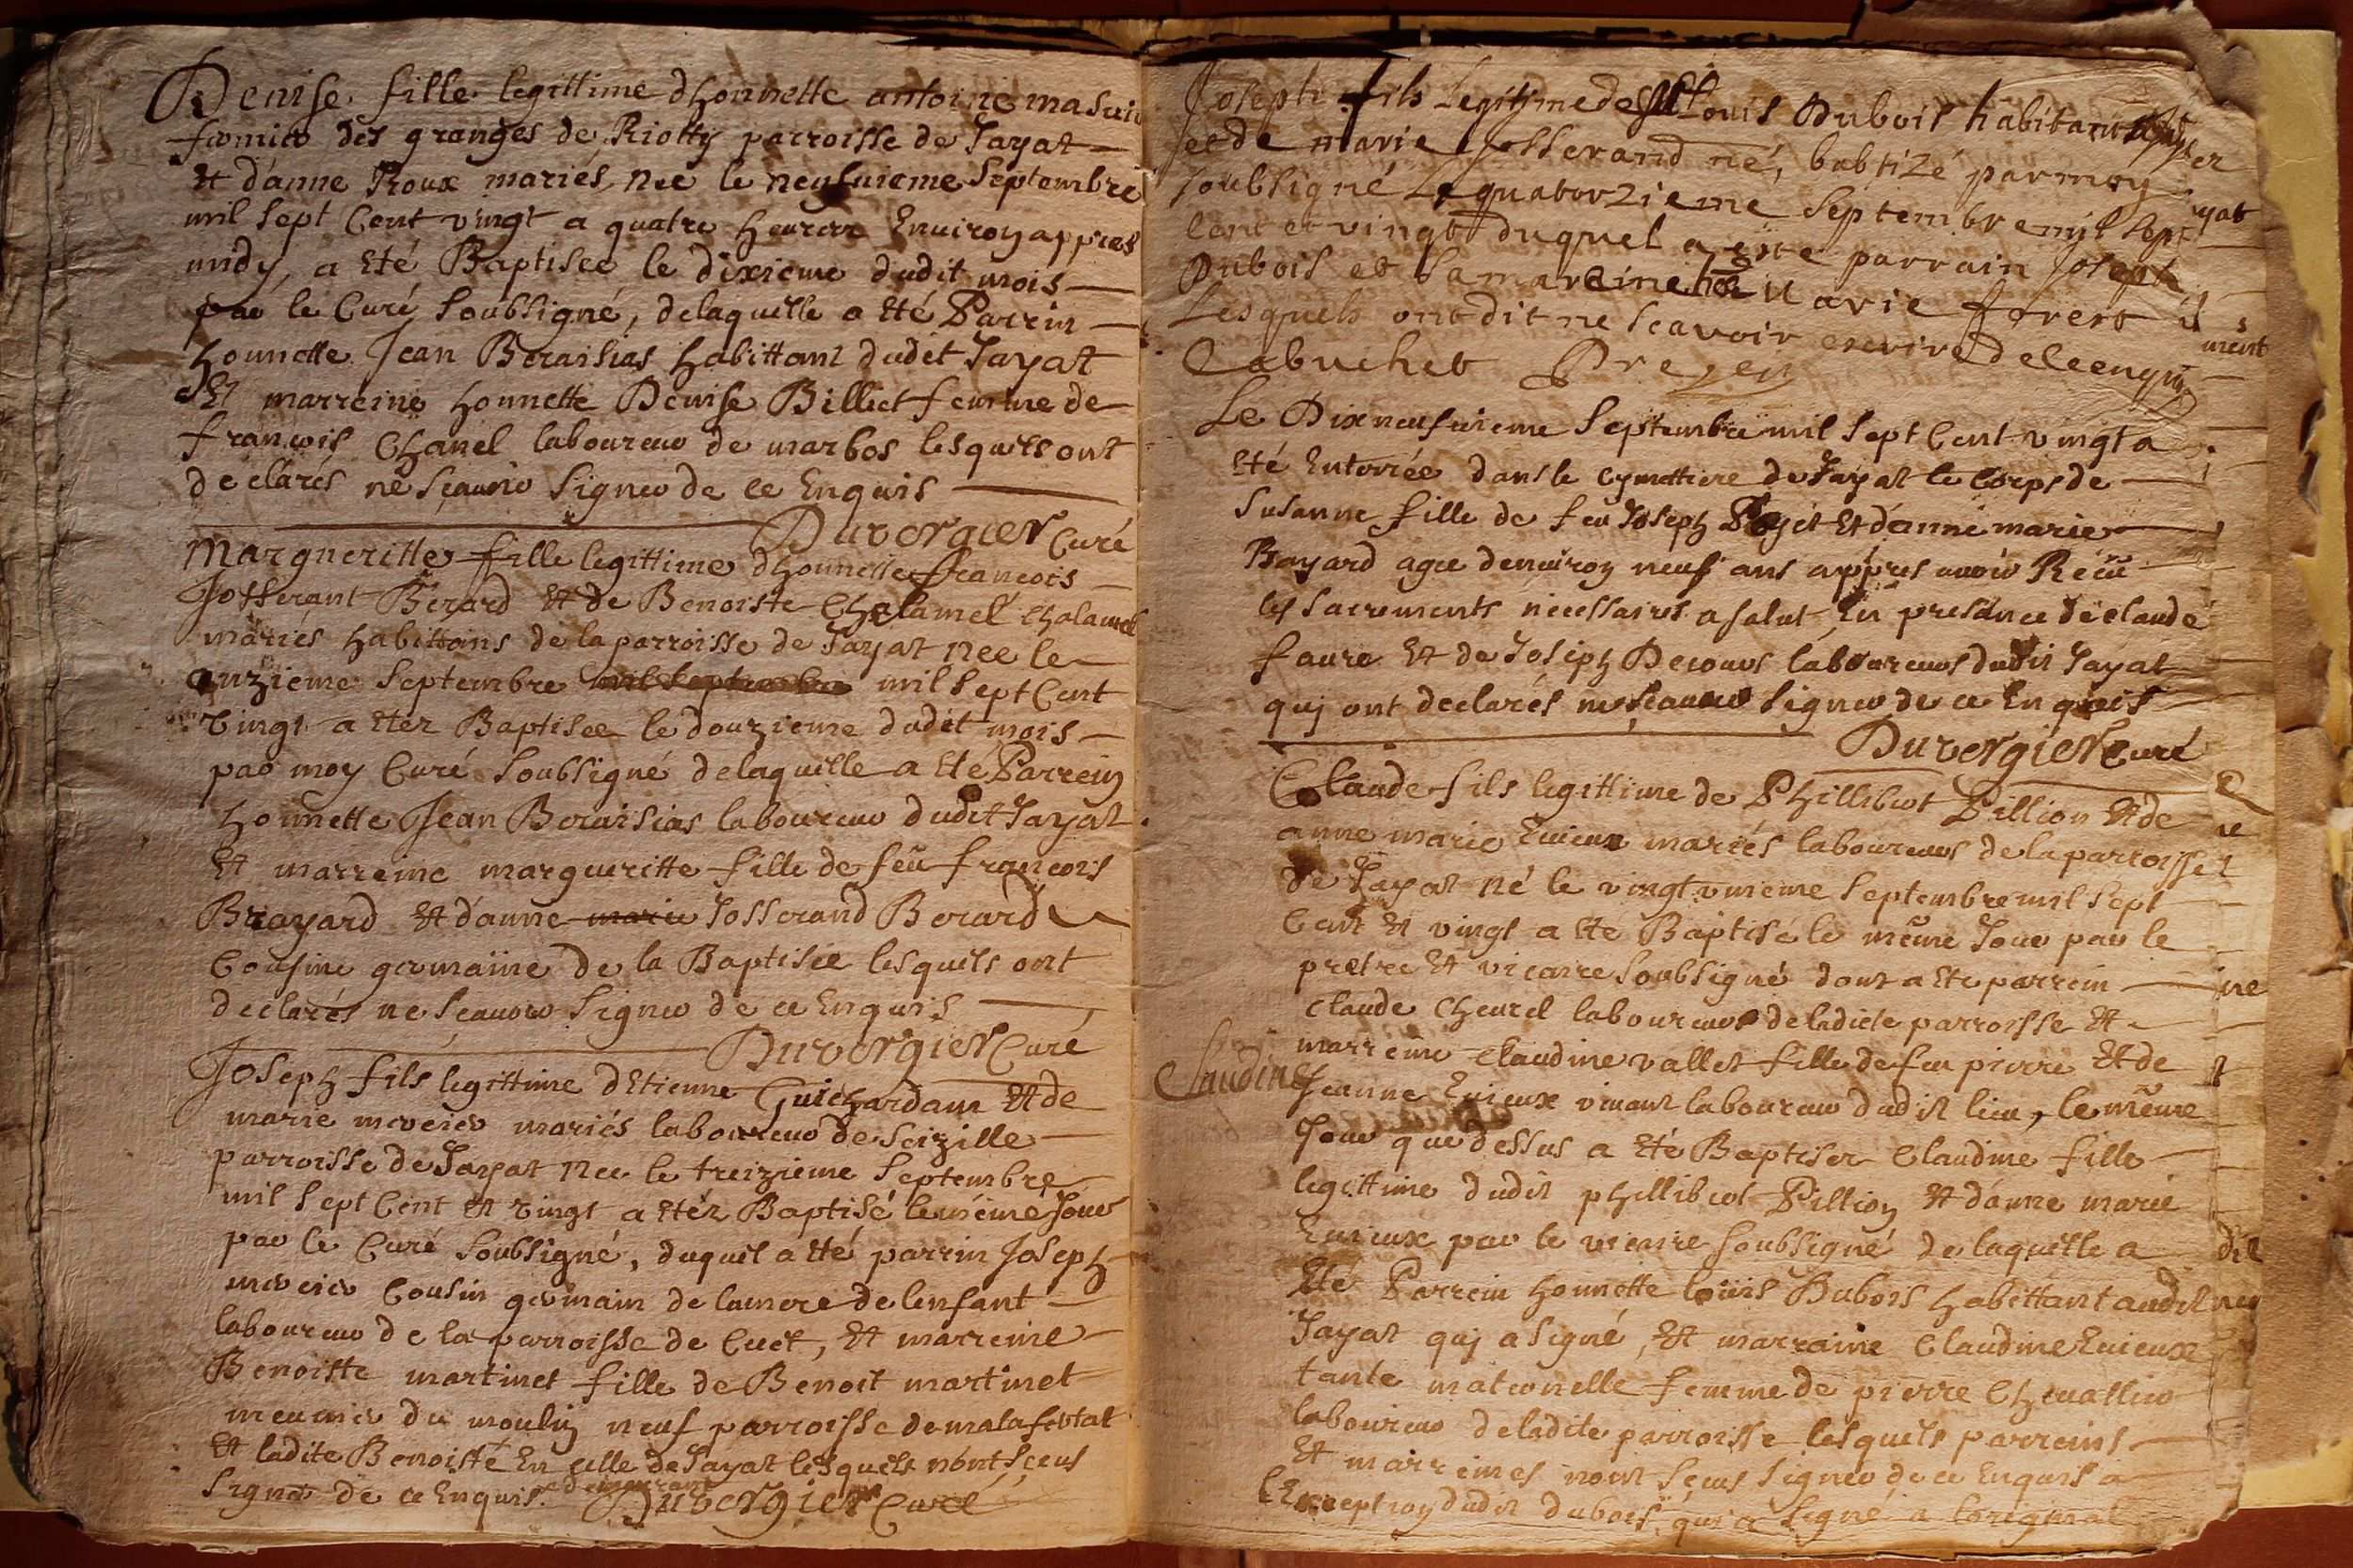 Denise fille legittime dhonnette antoine masuir
fermier des granges de Riotty parroisse de Jayat
Et danne Roux mariés, nee le neufuieme Septembre
mil sept Cent vingt a quatre heures Enuiron appres
midy, a Eté Baptisee le dixieme dudit mois
par le Curé Soubsigné, delaquelle a Eté Parrin
honnette Jean Beraisias habittant dudit Jayat
Et marreine honnette Denise Billiet femme de
francois Chanel laboureur de marbos lesquels ont
declarés ne Scauoir Signer de ce Enquis
Duvergier Curé
Margueritte fille legittime dhonnette francois
Josserant Berard Et de Benoiste Chalamel Chalamel
mariés habittans de la parroisse de Jayat nee le
onzieme Septembre mil Septembre mil sept Cent
vingt a Eter Baptisee le douzieme dudit mois
par moy Curé Soubsigné delaquelle a Eté Parrein
honnette Jean Beraisias laboureur dudit Jayat
Et marreine margueritte fille de feu francois
Brayard Et danne marie Josserand Berard
Cousine germaine de la Baptisée lesquels ont
declarés ne Scauoir Signer de ce Enquis
Duvergier Curé
Joseph fils legittime dEtienne Guichardam Et de
marie mercier mariés laboureur de Scizille
parroisse de Jayat nee le treizieme Septembre
mil sept Cent Et vingt a Eter Baptisé le même Jour
par le Curé Soubsigné, duquel a Eté parrin Joseph
mercier Cousin germain de la mere de lenfant
laboureur de la parroisse de Cuet, Et marreine
Benoiste martinet fille de Benoit martinet
meunier du moulin neuf parroisse de malafretat
Et ladite Benoiste En celle de Jayat lesquels nont Sceus
demeurant
Signer de ce Enquis. Duvergier Curé
Joseph fils Legitime de Louis Dubois habitant
et de marie Josserand né, babtizé par moy
soubsigné Le quatorzieme Septembre mil sept
cent et vingt duquel a este parrain Joseph
Dubois et sa maraine Marie forest
Lesquels ont dit ne scavoir escrire de ce enquis
Labuchet
Le Dixneufuieme Septembre mil sept Cent vingt a
Eté Enterrée dans le Cymettiere de Jayat le Corps de
Susanne fille de feu Joseph Et danne marie
Bayard agee denuiron neuf ans appres auoir Recu
les sacrements necessaires a salut, En presance de claude
faure Et de Joseph Decours laboureurs dudit Jayat
quj ont declarés ne Scauoir Signer de ce Enquis
Duvergier Curé
Claude fils legittime de Phillibert Pillion Et de
anne marie Euieux mariés laboureurs de la parroisse
de Jayat né le vingtvnieme Septembre mil sept
Cent Et vingt a Eté Baptisé le même Jour par le
pretre Et vicaire Soubsigné dont a Eté parrein
claude Cheurel laboureur de ladicte parroisse Et
marreine Claudine vallet fille de feu pierre Et de
Claudine
Jeanne Euieux viuant laboureur dudit lieu, le même
Jour que dessus a Eté Baptiser Claudine fille
legittime dudit phillibert Pillion Et danne marie
Euieux par le vicaire soubsigné de laquelle a
Eté Parrein honnette louis Dubois habittant audit
Jayat quj a signé, Et marraine Claudine Euieux
tante maternelle femme de pierre Cheuallier
laboureur de ladite parroisse lesquels parreins
Et marreines nont Sceus Signer de ce Enquis a
lException dudit dubois, qui a Signé a loriginal